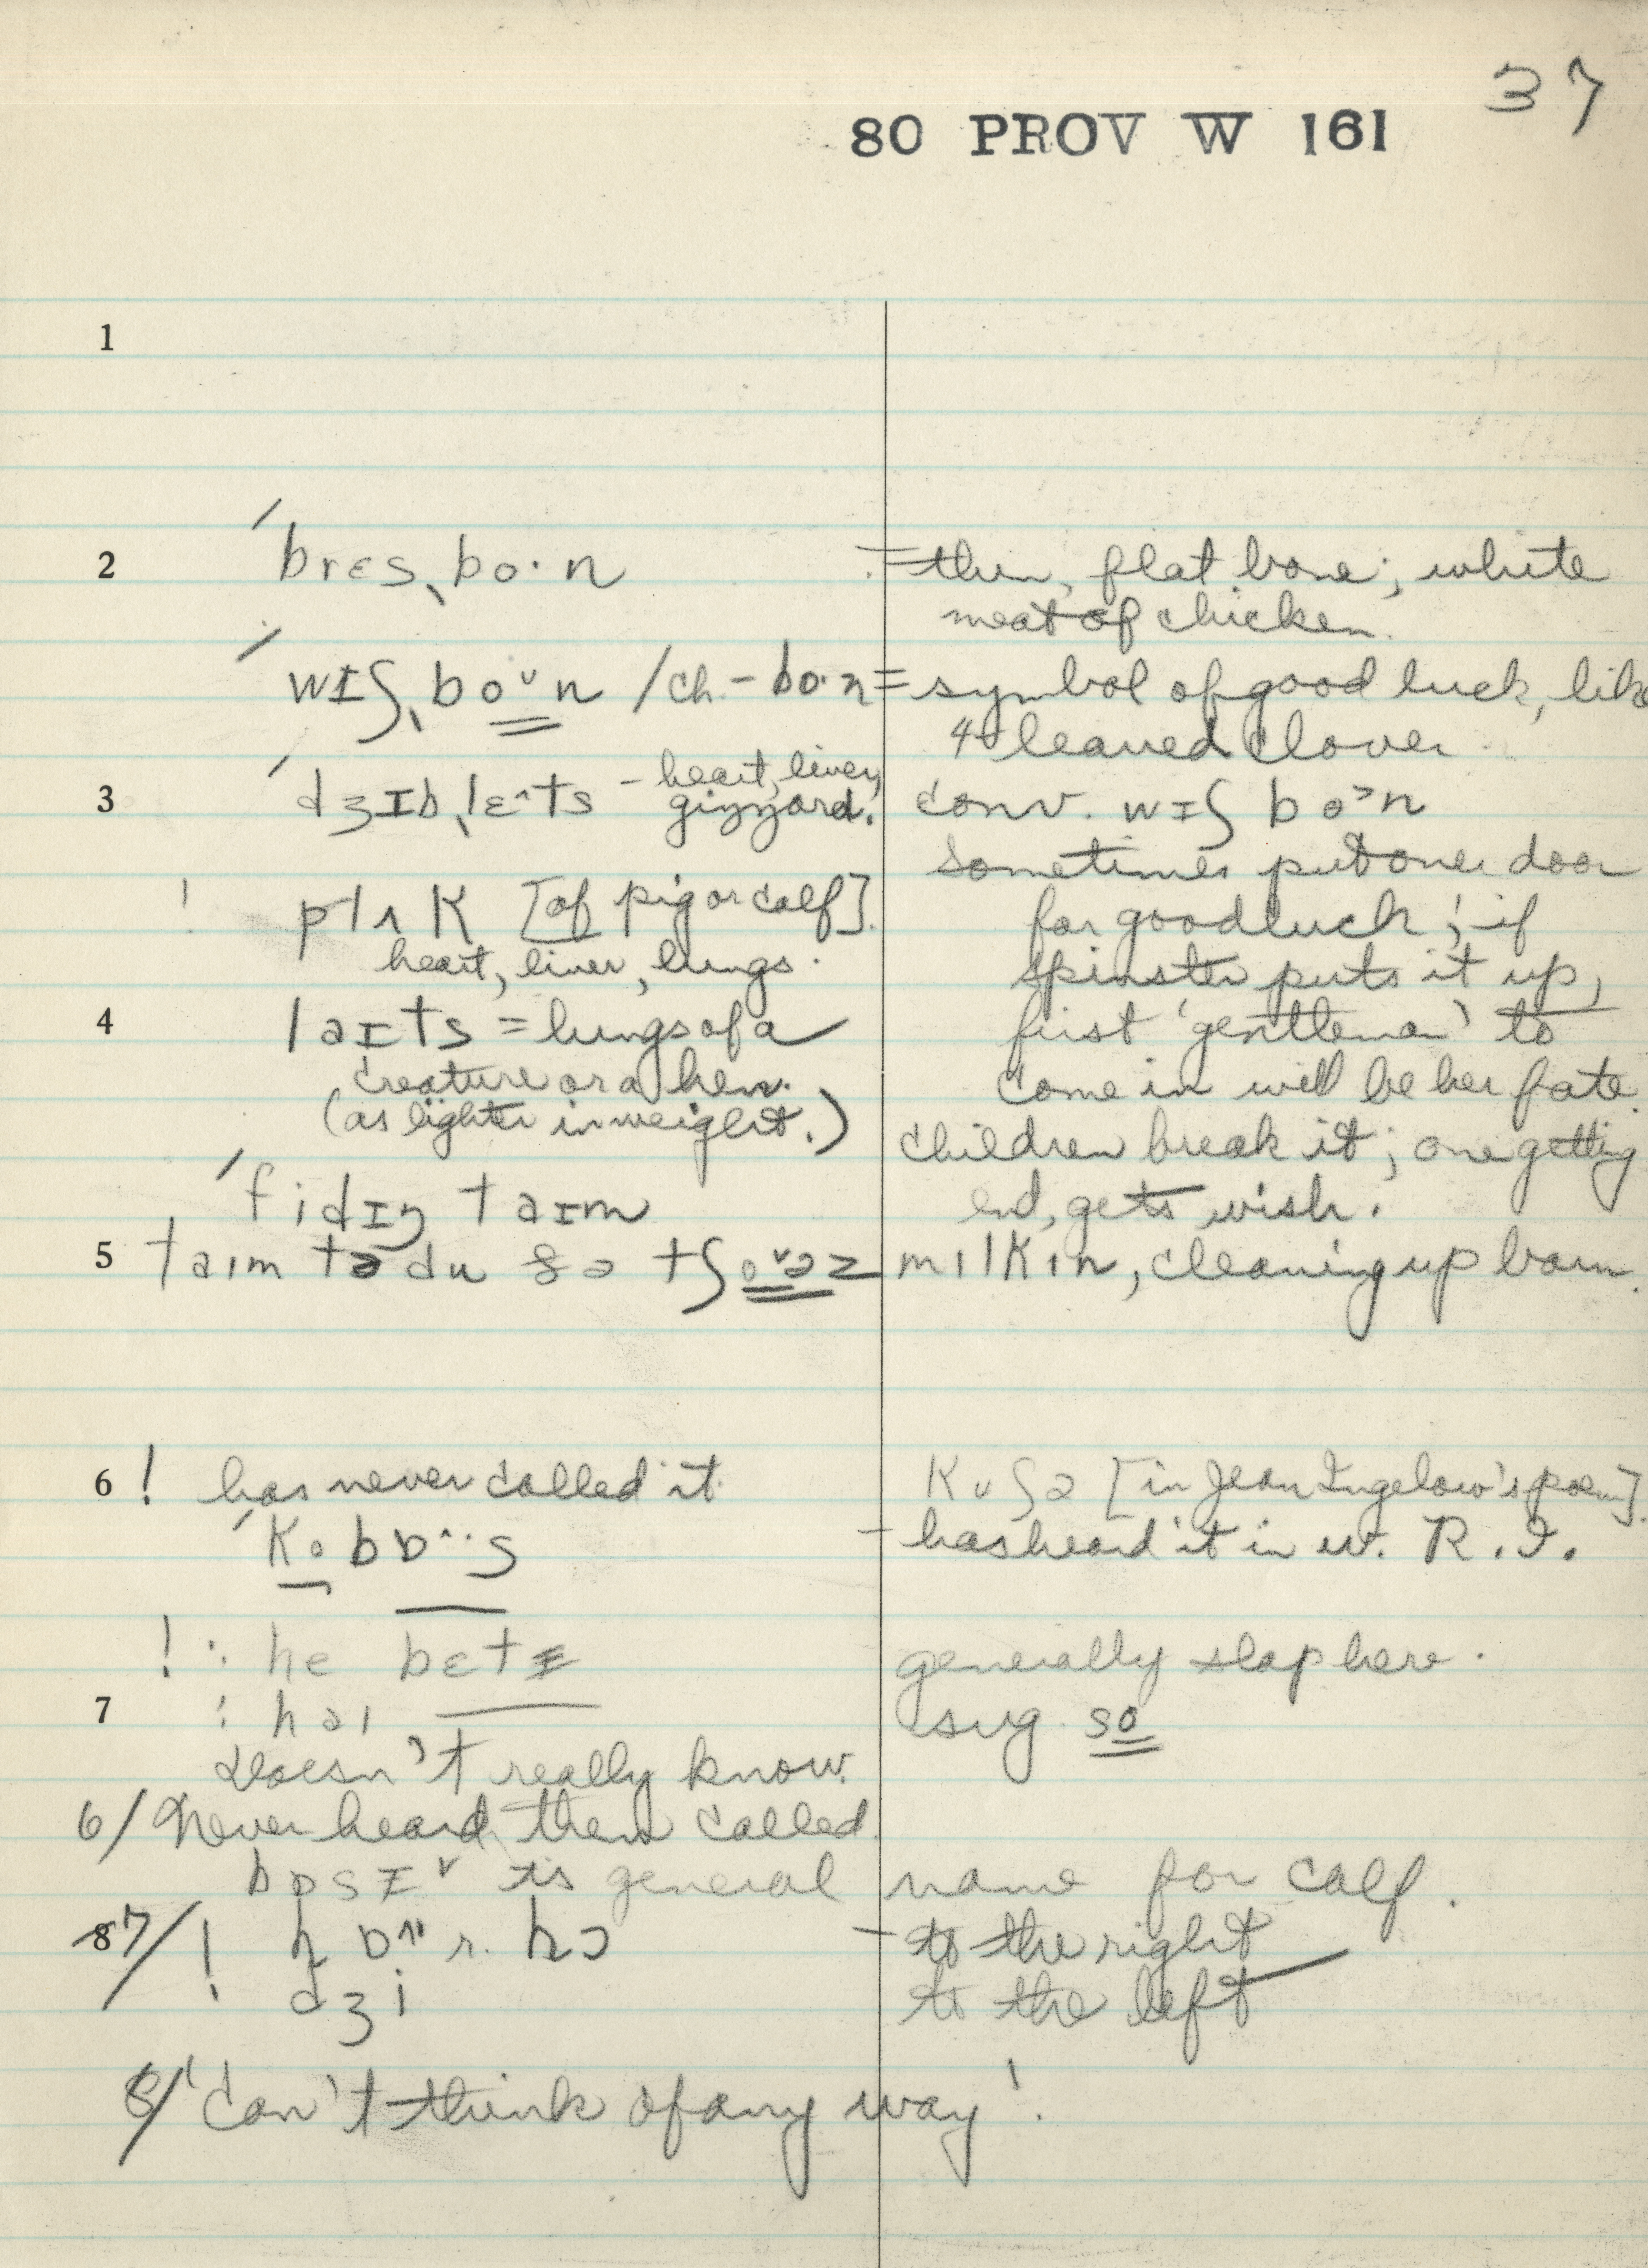 37
80 PROV W 161
1
2 ˈbrɛsˌbo·n = thin, flat bone; white
meat of chicken.
ˈwɪʃˌbo˅n / ch - bo·n = symbol of good luck, like
4 leaved clover
3 ˈdʒɪbˌlɛ^ts - heart, liver, gizzard.
conv. wɪʃ bo>n
sometimes put over door
! plʌk [of pig or calf].
for good luck; if
heart, liver, lungs.
spinster puts it up,
4 laɪts = lungs of a
first 'gentleman' to
creature or a hen.
come in will be her fate.
(as lighter in weight.)
children break it; one getting
ˈfidɪŋ taɪm
end, gets wish.
5 taɪm tə du ðə tʃo˅əz milkin, cleaning up barn.
6 ! has never called it
kʊʃə [in Jean Ingelow's poem].
ˈkobɒ^··s - has heard it in w. R.I.
! : he bɛtɪ generally slap here.
7 : həɪ sug so
doesn't really know.
6/ Never heard them called
bɒsɪ˅ is general name for calf.
8 7/ ! hɒ^ r. hɔ - to the right
dʒi to the left
8/ 'Can't think of any way'.